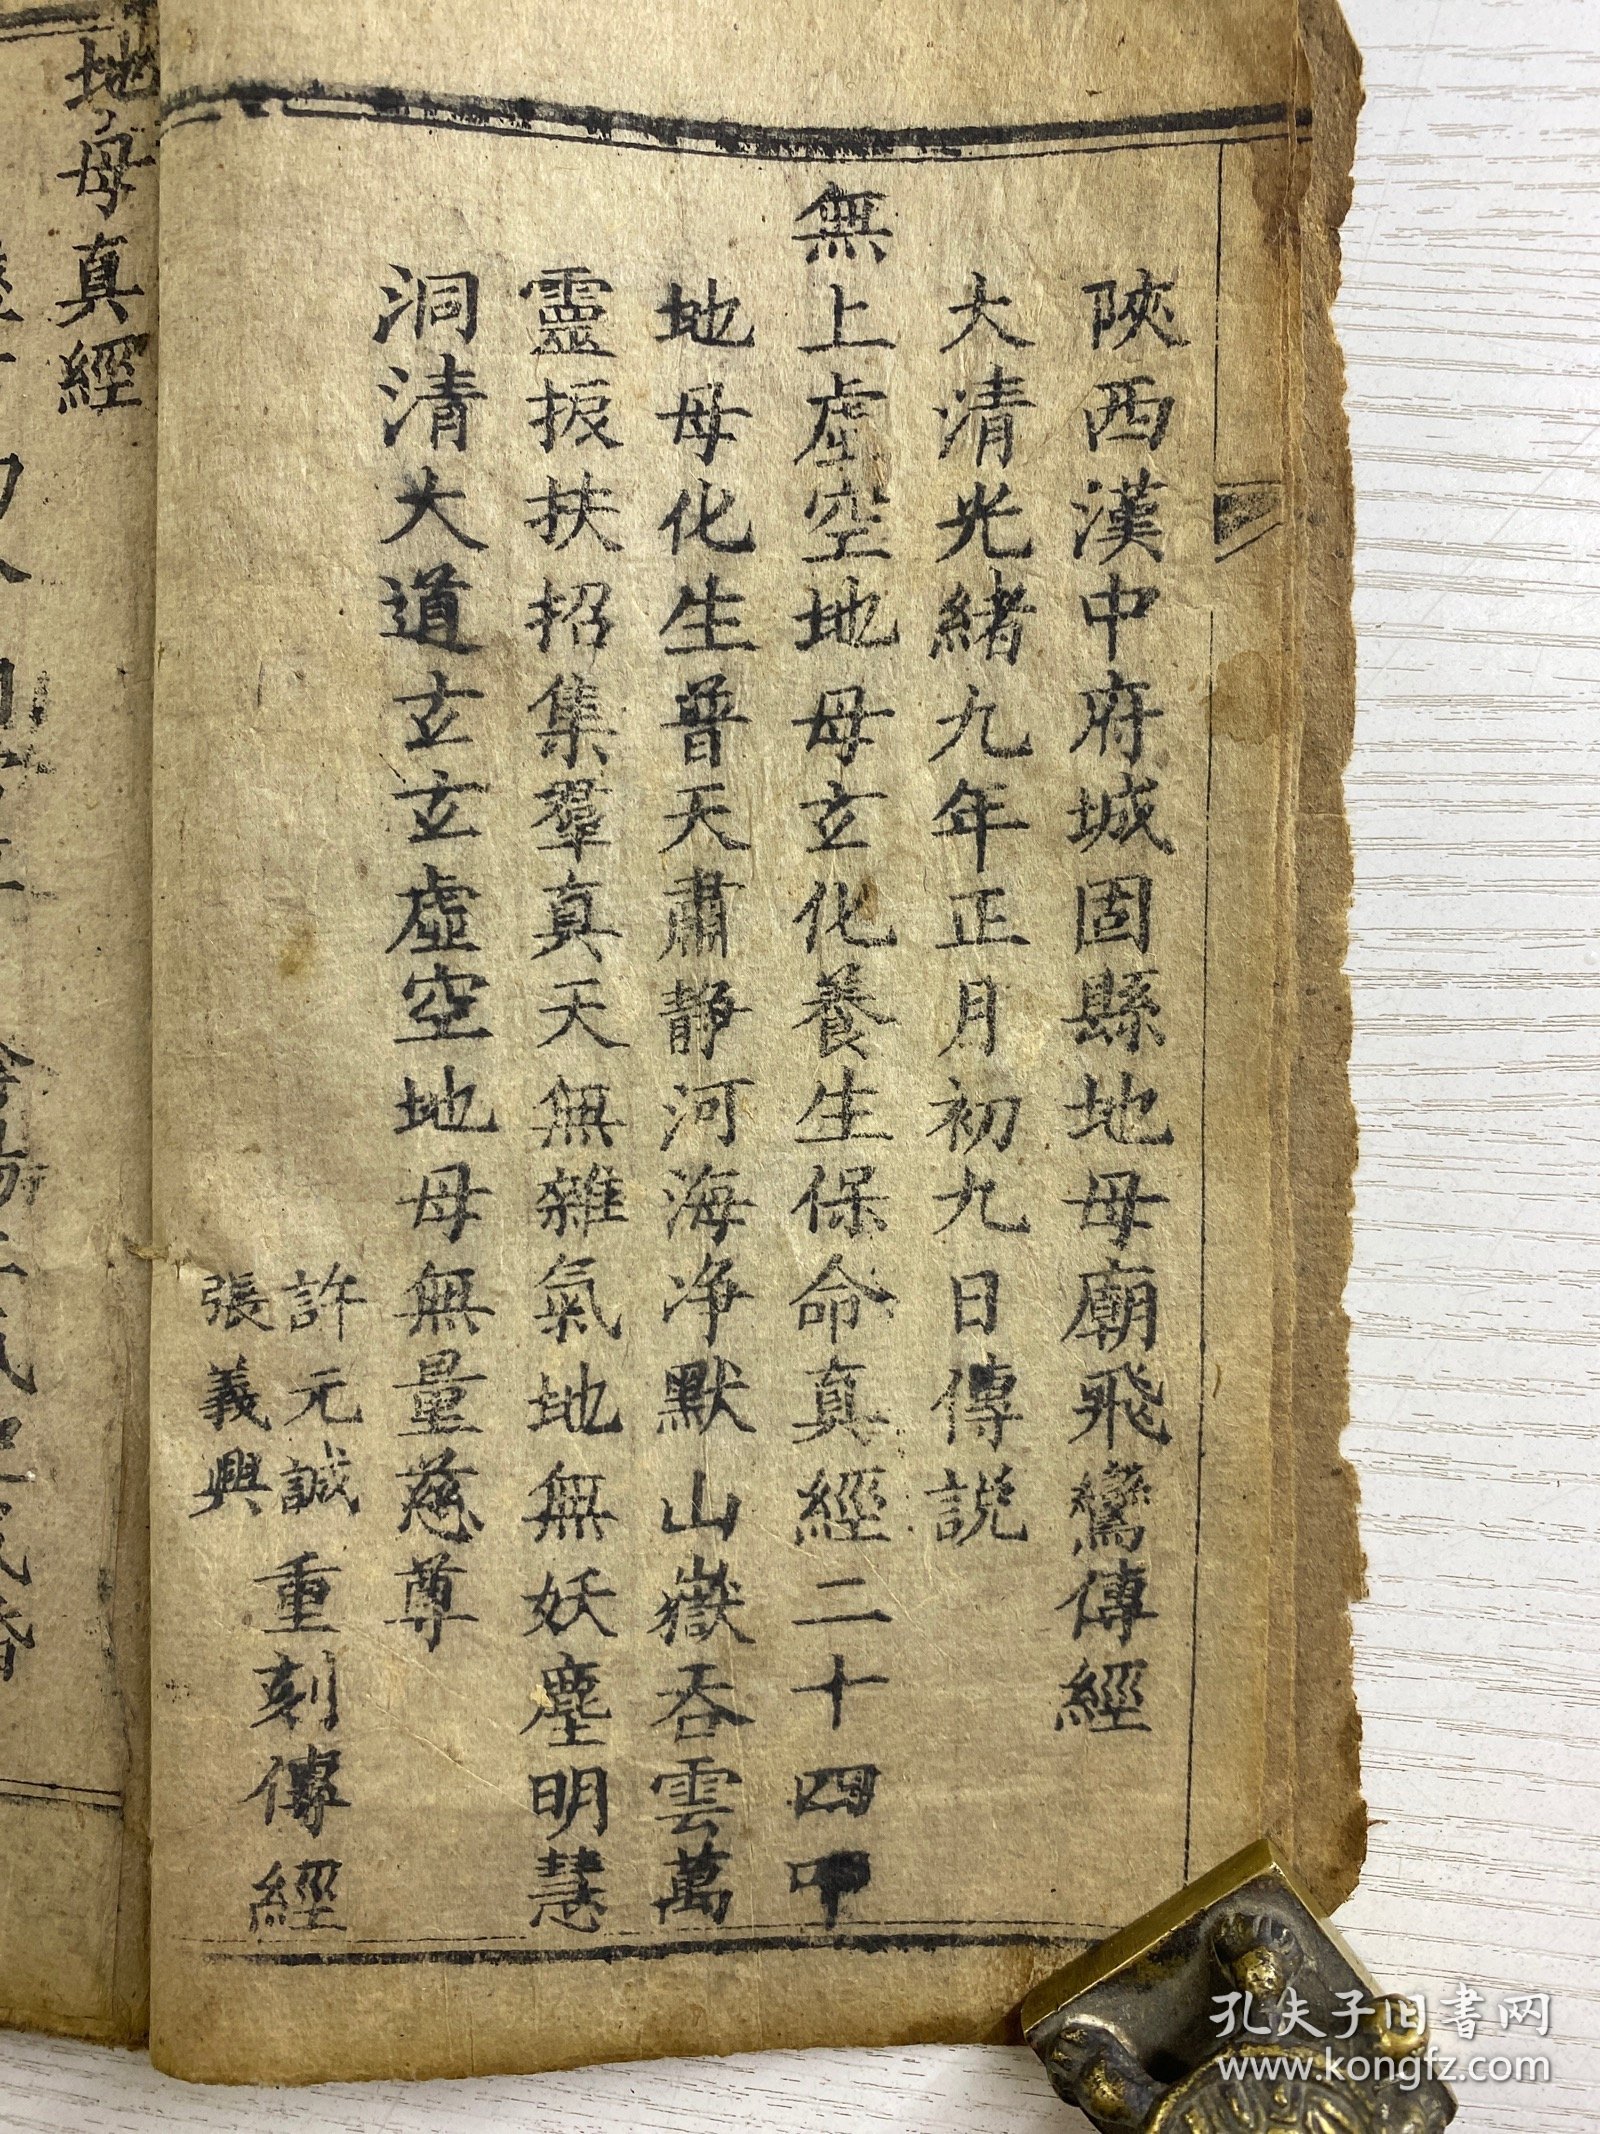 陝西漢中府城固縣地母廟飛鸞傳經
大清光緒九年正月初九日傳説
無上虛空地母玄化養生保命真經二十四
地母化生普天肅静河海净默山嶽吞雲萬
靈振扶招集羣真天無雜氣地無妖塵明慧
洞清大道玄玄虛空地母無量慈尊
許元誠
張義興
重刻傳經
地母真經
孔夫子旧书网
www.kongfz.com